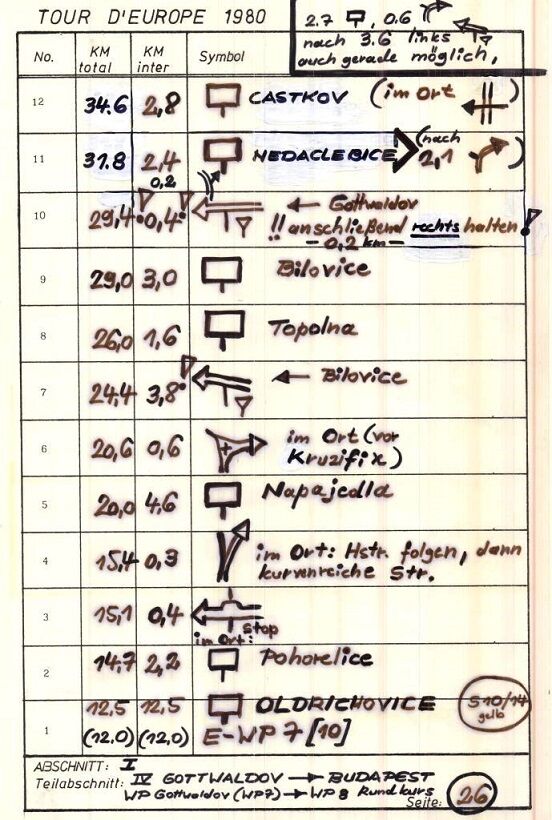 TOUR D'EUROPE 1980
2.7 , 0.6
nach 3.6 links
auch gerade möglich,
No. KM total KM inter Symbol
12 34.6 2,8 CASTKOV (im Ort )
11 31.8 2,4 NEDACLEBICE (nach 2,1 )
0,2
10 29,4 0,4 Gottwaldov
!! anschließend rechts halten!
- 0,2 km -
9 29,0 3,0 Bilovice
8 26,0 1,6 Topolna
7 24,4 3,8 Bilovice
6 20,6 0,6 im Ort (vor
Kruzifix)
5 20,0 4,6 Napajedla
4 15,4 0,3 im Ort: Hstr. folgen, dann
kurvenreiche Str.
3 15,1 0,4 Stop
im Ort:
2 14,7 2,2 Pohorelice
12,5 12,5 OLDRICHOVICE
1 (12.0) (12,0) E-WP 7 [10]
S10/14
gelb
ABSCHNITT: I
Teilabschnitt: IV GOTTWALDOV → BUDAPEST
WP Gottwaldov (WP7) → WP 8 Rundkurs
Seite: 26